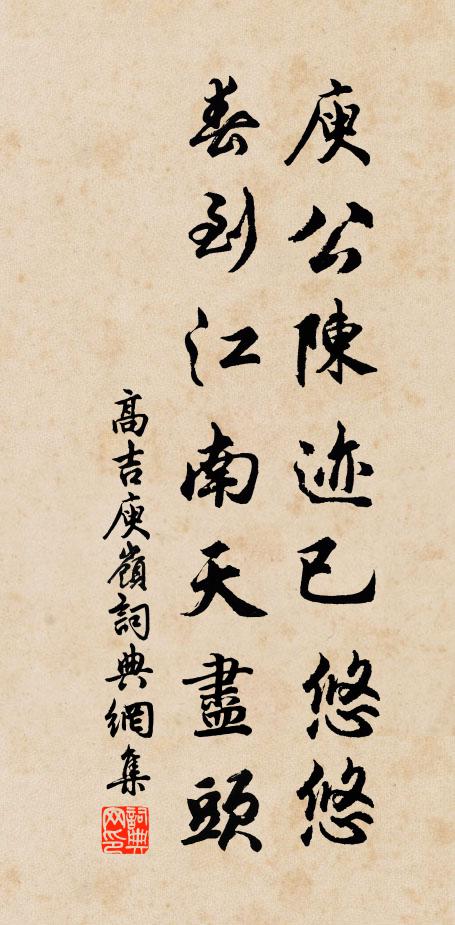 庾公陳迹已悠悠
春到江南天盡頭
高吉庾嶺詞典網集
詞典網印